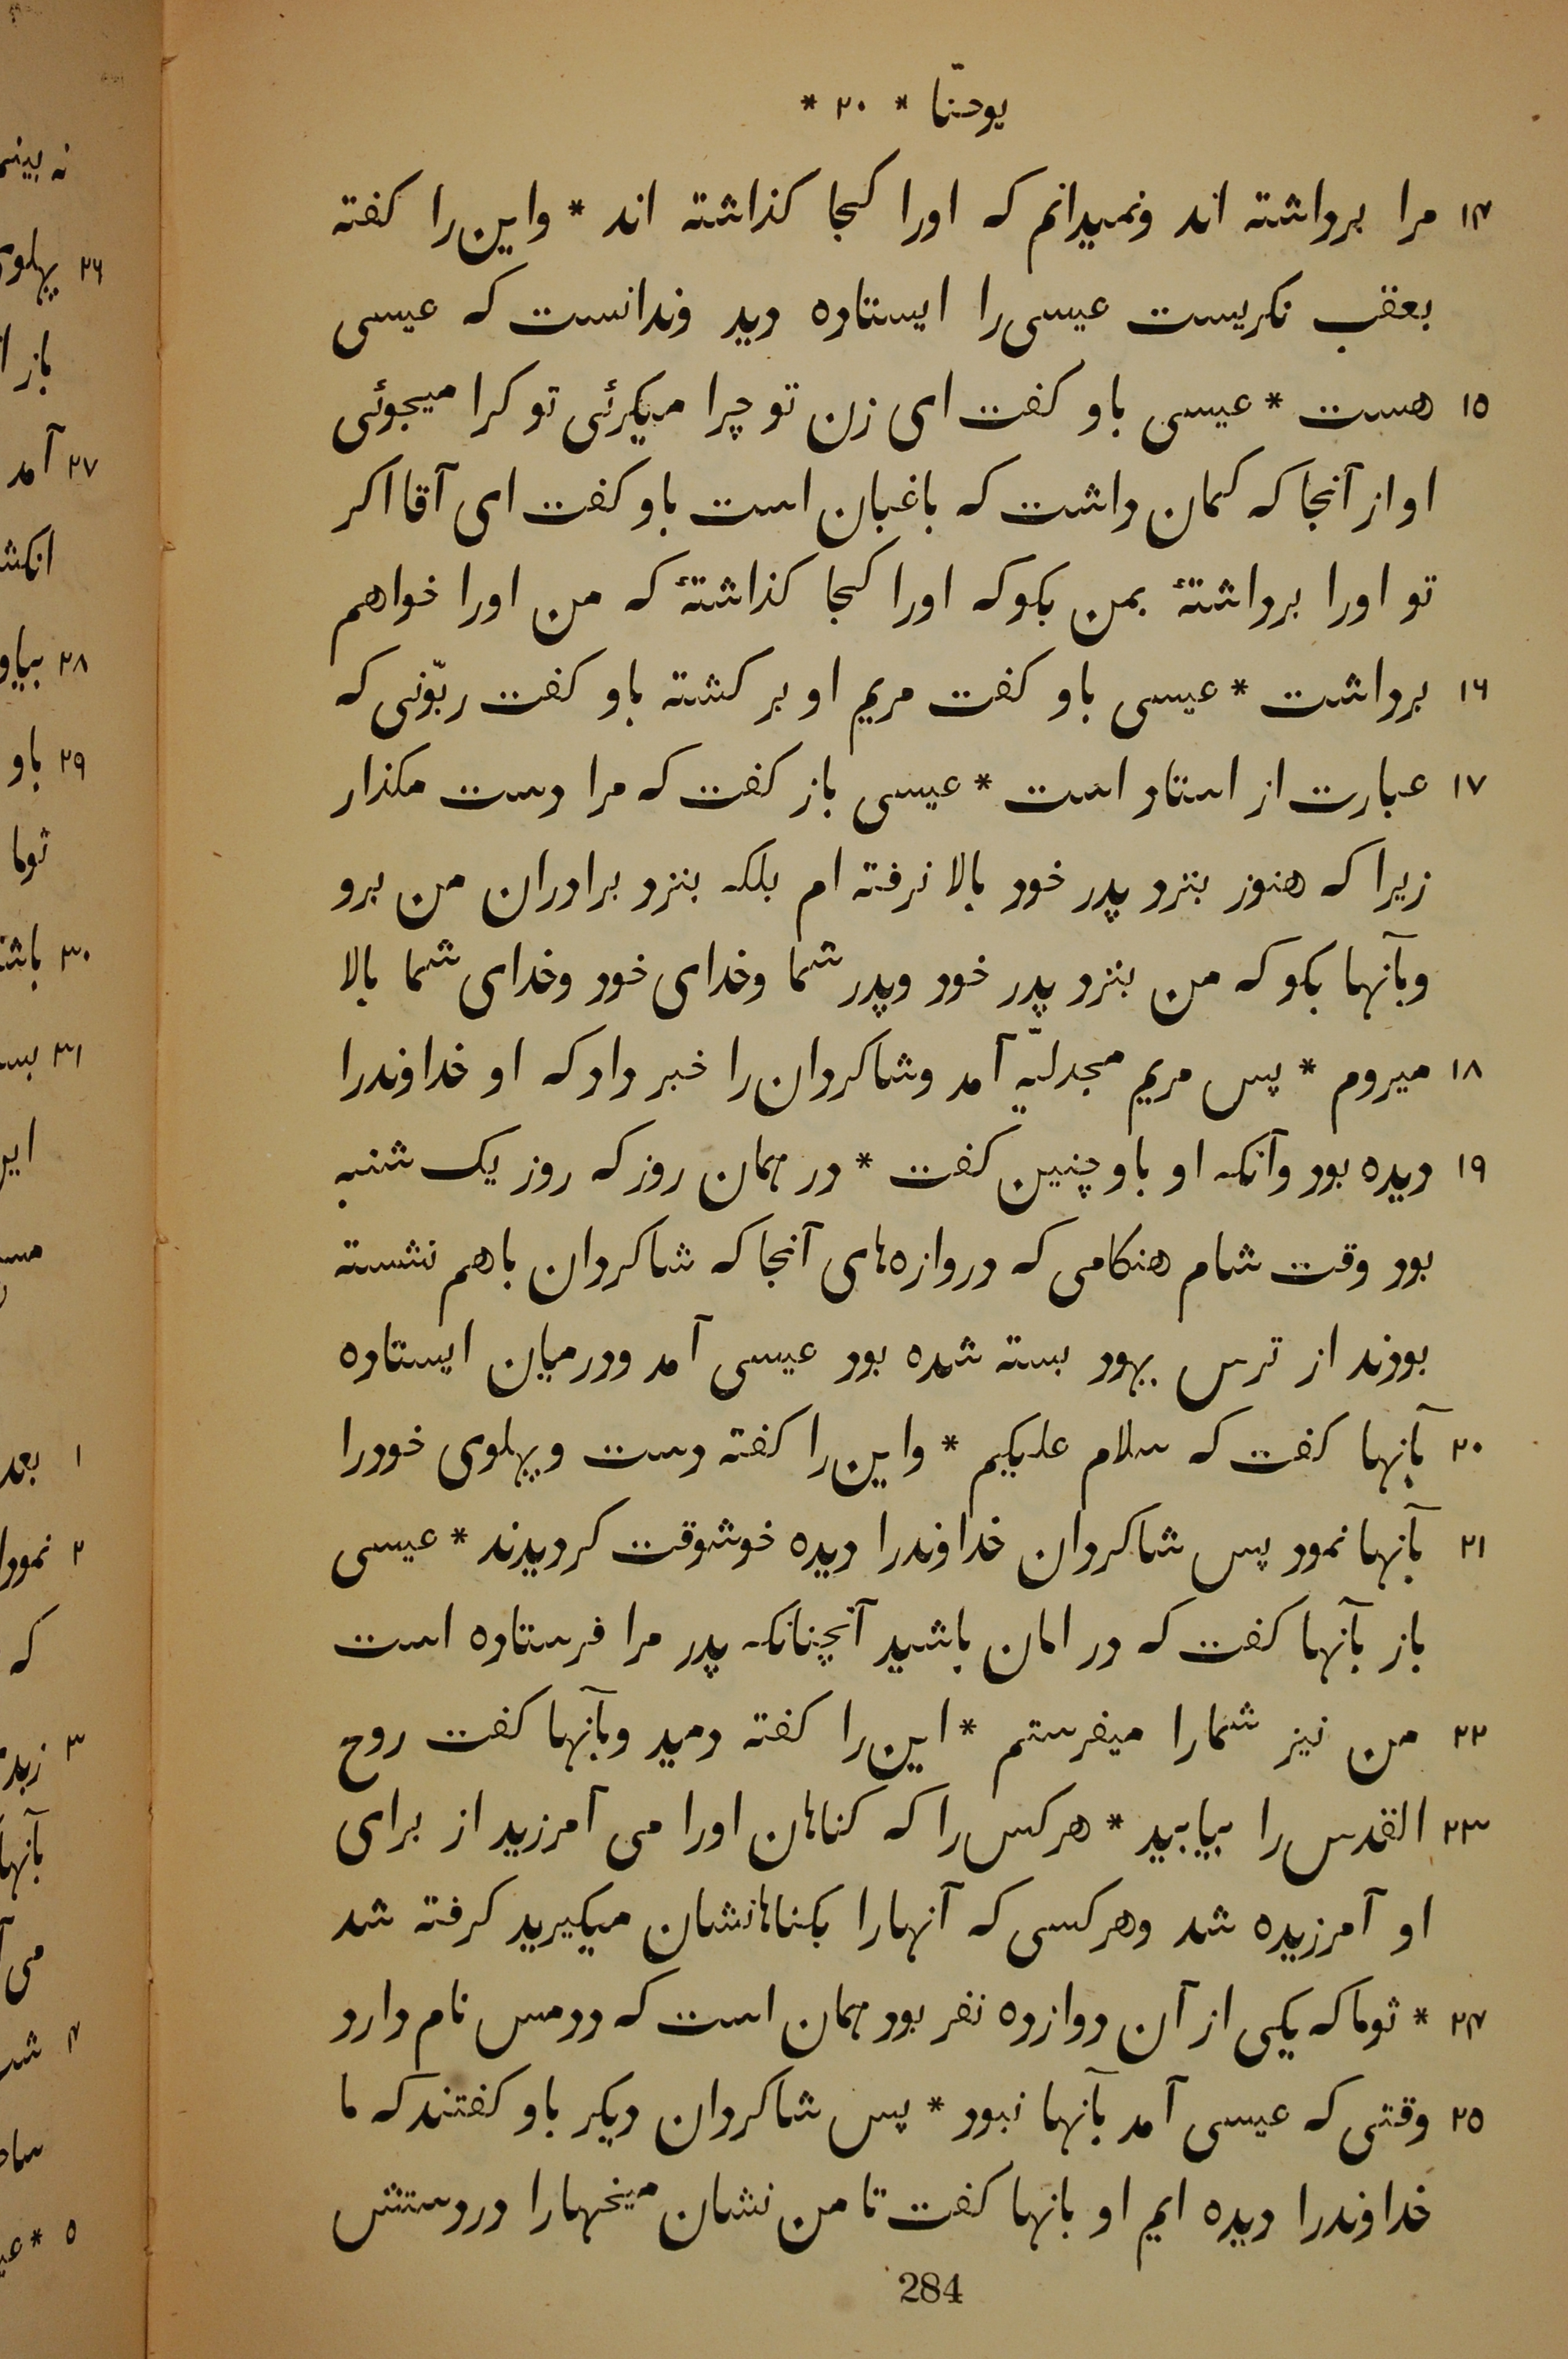 یوحنّا * ۲۰ *
۱۴ مرا برداشته اند ونمیدانم که اورا کجا کذاشته اند * واین را کفته
بعقب نکریست عیسی را ایستاده دید وندانست که عیسی
۱۵ هست * عیسی باو کفت ای زن تو چرا میکرئی تو کرا میجوئی
او از آنجا که کمان داشت که باغبان است باو کفت ای آقا اکر
تو اورا برداشتهٔ بمن بکو که اورا کجا کذاشتهٔ که من اورا خواهم
۱۶ برداشت * عیسی باو کفت مریم او بر کشته باو کفت ربّونی که
۱۷ عبارت از استاد است * عیسی باز کفت که مرا دست مکذار
زیرا که هنوز بنزد پدر خود بالا نرفته ام بلکه بنزد برادران من برو
وبآنها بکو که من بنزد پدر خود وپدر شما وخدای خود وخدای شما بالا
۱۸ میروم * پس مریم مجدلیّه آمد وشاکردان را خبر داد که او خداوندرا
۱۹ دیده بود وآنکه او باو چنین کفت * در همان روز که روز یک شنبه
بود وقت شام هنکامی که دروازه‌های آنجا که شاکردان باهم نشسته
بودند از ترس یهود بسته شده بود عیسی آمد ودرمیان ایستاده
۲۰ بآنها کفت که سلام علیکم * واین را کفته دست وپهلوی خودرا
۲۱ بآنها نمود پس شاکردان خداوندرا دیده خوشوقت کردیدند * عیسی
باز بآنها کفت که در امان باشید آنچنانکه پدر مرا فرستاده است
۲۲ من نیز شمارا میفرستم * این را کفته دمید وبآنها کفت روح
۲۳ القدس را بیابید * هرکس را که کناهان اورا می آمرزید از برای
او آمرزیده شد وهرکسی که آنهارا بکناهانشان میکیرید کرفته شد
۲۴ * ثوما که یکی از آن دوازده نفر بود همان است که ددمس نام دارد
۲۵ وقتی که عیسی آمد بآنها نبود * پس شاکردان دیکر باو کفتند که ما
خداوندرا دیده ایم او بانها کفت تا من نشان میخهارا دردستش
284
۲۶ پهلوی
باز
۲۷ آمد
۲۸
۲۹ باو
ثوما
۳۰
۳۱
۱ بعد
۲
که
۳
۴
۵ *